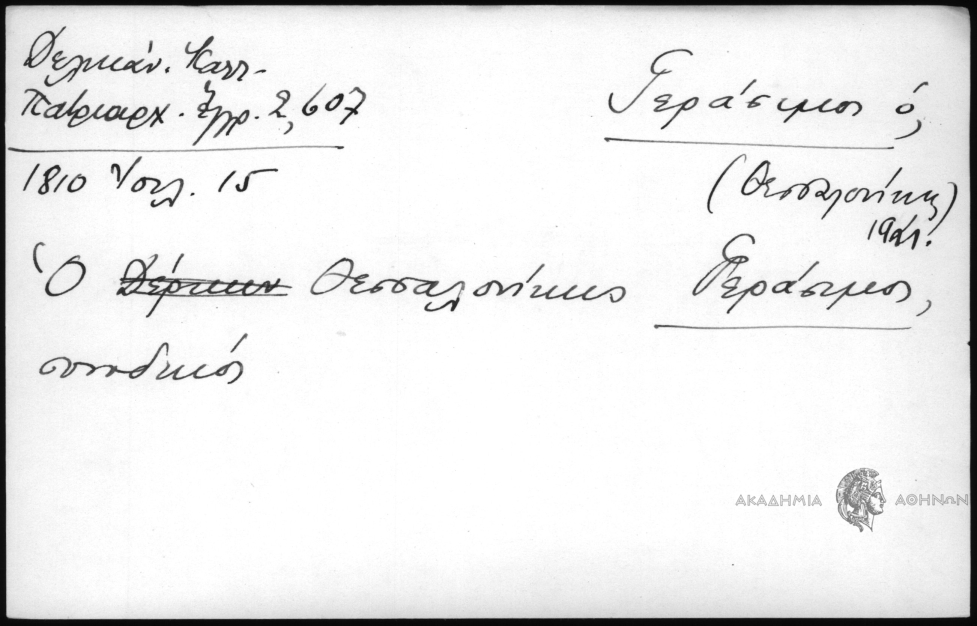 Δελικάν. Καλλ.
Πατριαρχ. Ἔγγρ. 2, 607
1810 Ἰουλ. 15
Γεράσιμος ὁ,
(Θεσσαλονίκης)
Ὁ Δέρκων Θεσσαλονίκης Γεράσιμος,
συνοδικός
ΑΚΑΔΗΜΙΑ ΑΘΗΝΩΝ